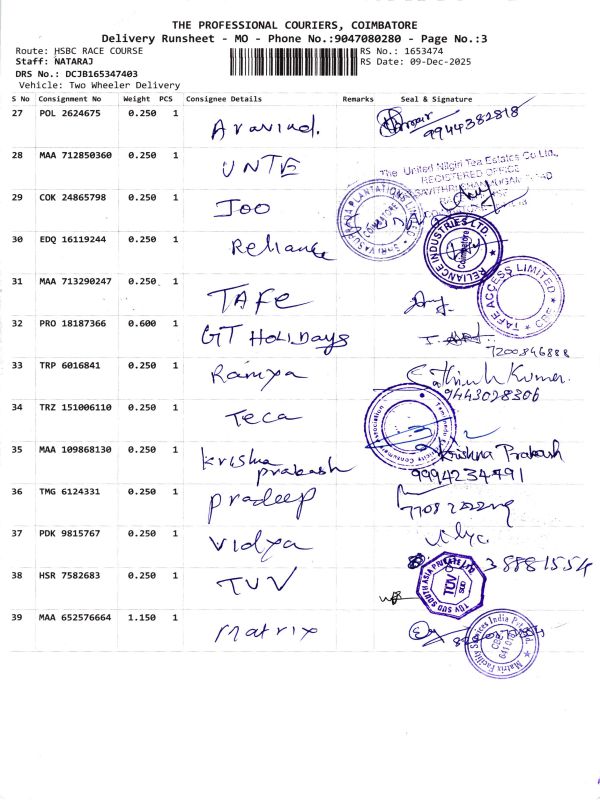 THE PROFESSIONAL COURIERS, COIMBATORE
Delivery Runsheet - MO - Phone No.:9047080280 - Page No.:3
Route: HSBC RACE COURSE RS No.: 1653474
Staff: NATARAJ RS Date: 09-Dec-2025
DRS No.: DCJB165347403
Vehicle: Two Wheeler Delivery
S No Consignment No Weight PCS Consignee Details Remarks Seal & Signature
27 POL 2624675 0.250 1 Aravind. 9944382818
28 MAA 712850360 0.250 1 UNTE
The United Nilgiri Tea Estates Co Ltd.,
REGISTERED OFFICE
29 COK 24865798 0.250 1 Joo
PLANTATIONS LIMITED COIMBATORE
30 EDQ 16119244 0.250 1 Reliance
RELIANCE INDUSTRIES LTD. Coimbatore
31 MAA 713290247 0.250 1 TAFE
TAFE ACCESS LIMITED CBE
32 PRO 18187366 0.600 1 GT HOLIDAYS
7200846888
33 TRP 6016841 0.250 1 Ramya
9443028306
34 TRZ 151006110 0.250 1 Teca
35 MAA 109868130 0.250 1 krisha prakash Krishna Prakash
9994234491
36 TMG 6124331 0.250 1 pradeep
37 PDK 9815767 0.250 1 Vidya
38 HSR 7582683 0.250 1 TUV 38881554
TÜV SUD SOUTH ASIA PRIVATE LTD
39 MAA 652576664 1.150 1 Matrix
Matrix Facility Services India Pvt. Ltd.